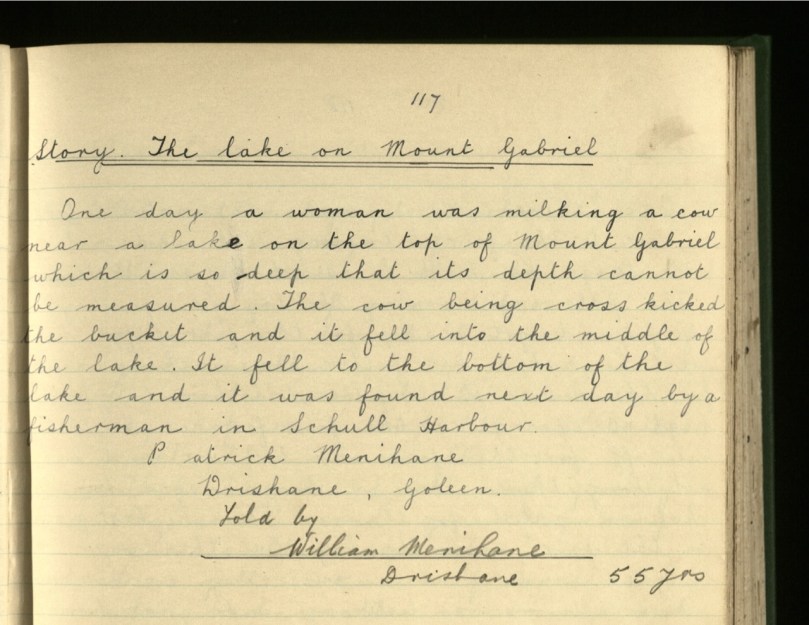 117
Story. The lake on Mount Gabriel
One day a woman was milking a cow
near a lake on the top of Mount Gabriel
which is so deep that its depth cannot
be measured. The cow being cross kicked
the bucket and it fell into the middle of
the lake. It fell to the bottom of the
lake and it was found next day by a
fisherman in Schull Harbour.
Patrick Menihane
Drishane, Goleen.
Told by
William Menihane
Drishane 55 yrs